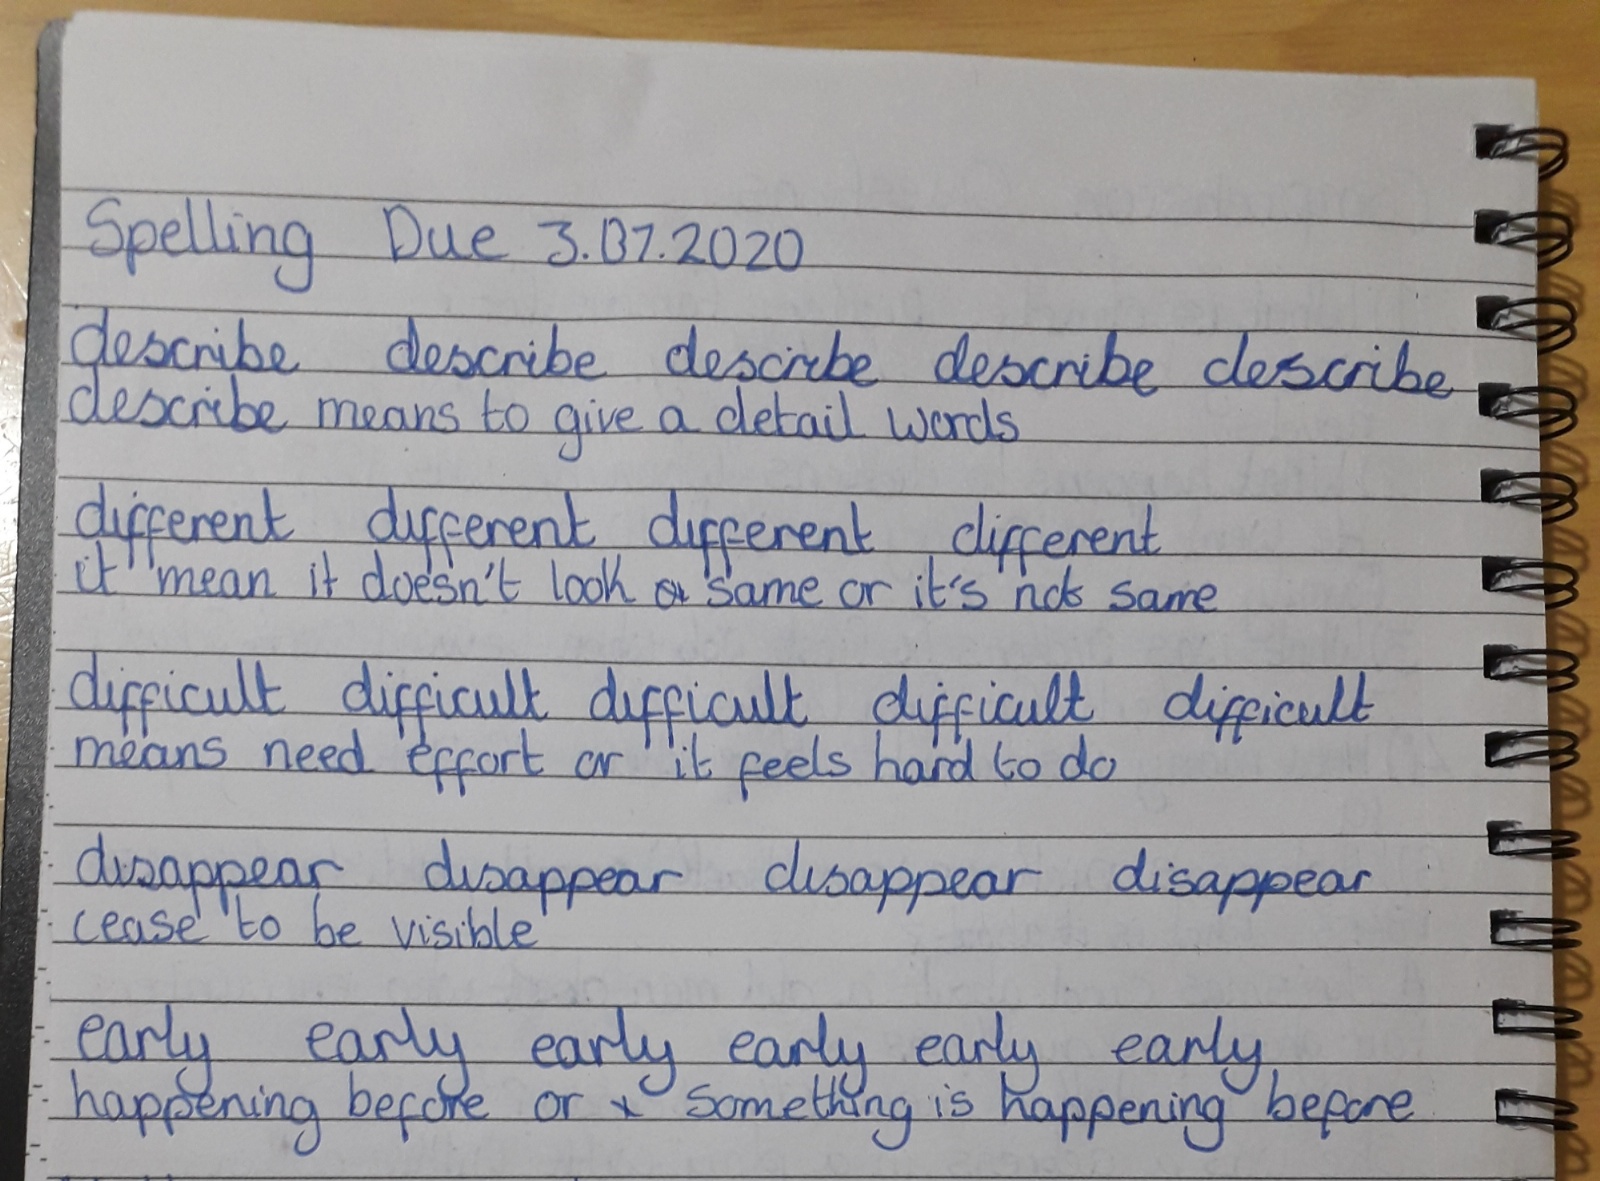 Spelling Due 3.07.2020
describe describe describe describe describe
describe means to give a detail words
different different different different
it mean it doesn't look same or it's not same
difficult difficult difficult difficult difficult
means need effort or it feels hard to do
disappear disappear disappear disappear
cease to be visible
early early early early early early
happening before or x something is happening before